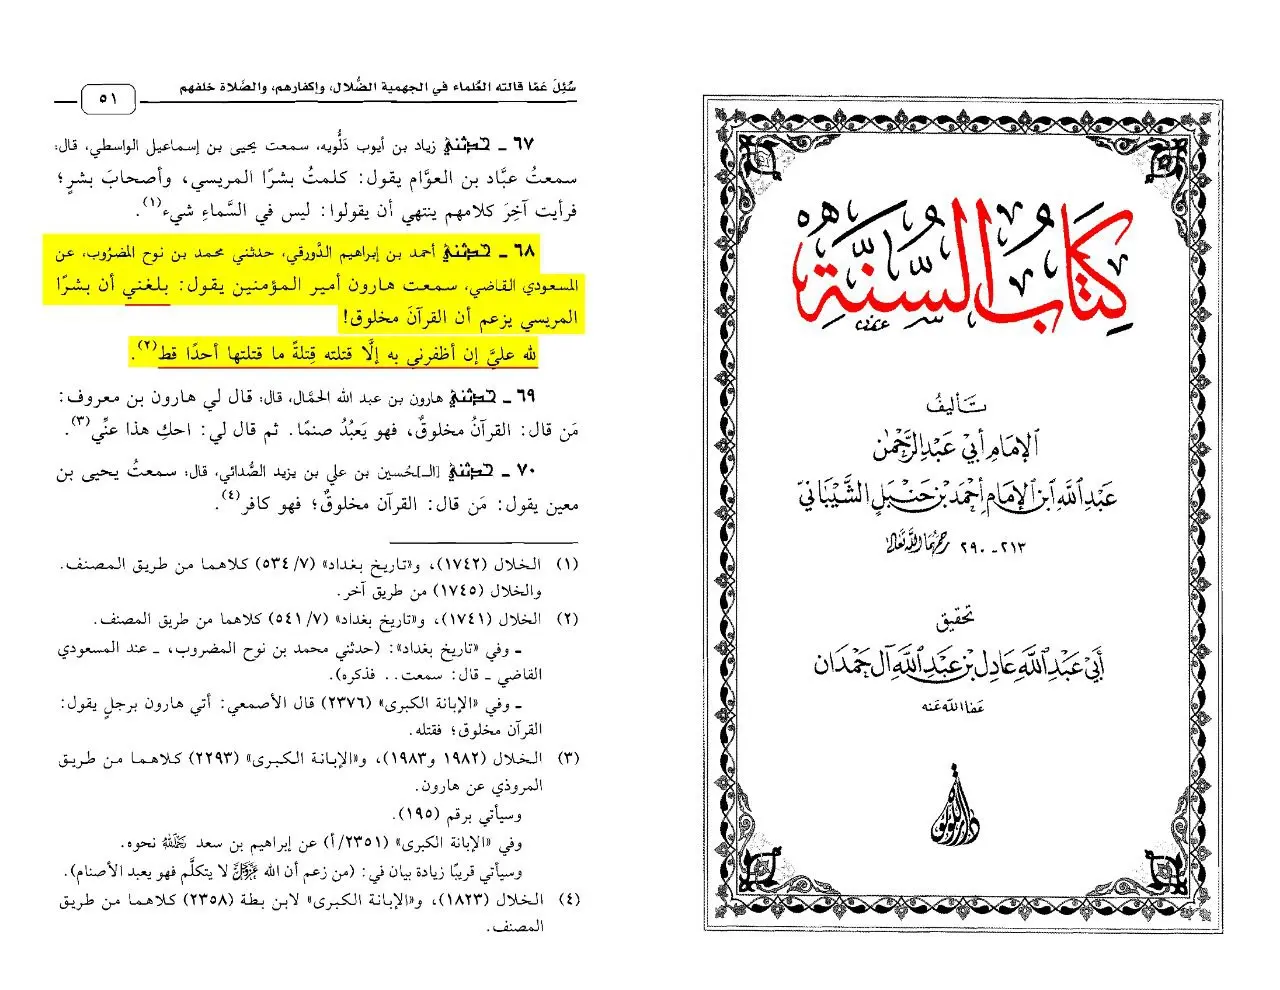 سُئِلَ عَمَّا قالته العُلماء في الجهمية الضُّلال، وإكفارهم، والصَّلاة خلفهم
٥١
٦٧ ـ حدثني زياد بن أيوب دَلُّويه، سمعت يحيى بن إسماعيل الواسطي، قال:
سمعتُ عبَّاد بن العوَّام يقول: كلمتُ بشرًا المريسي، وأصحابَ بشرٍ؛
فرأيت آخِرَ كلامهم ينتهي أن يقولوا: ليس في السَّماءِ شيء(١).
٦٨ ـ حدثني أحمد بن إبراهيم الدَّورقي، حدثني محمد بن نوح المضرُوب، عن
المسعودي القاضي، سمعت هارون أمير المؤمنين يقول: بلغني أن بشرًا
المريسي يزعم أن القرآنَ مخلوق!
لله عليَّ إن أظفرني به إلَّا قتلته قِتلةً ما قتلتها أحدًا قط(٢).
٦٩ ـ حدثني هارون بن عبد الله الحمَّال، قال: قال لي هارون بن معروف:
مَن قال: القرآنُ مخلوقٌ، فهو يَعبُدُ صنمًا. ثم قال لي: احكِ هذا عنِّي(٣).
٧٠ ـ حدثني [الـ]حُسين بن علي بن يزيد الصُّدائي، قال: سمعتُ يحيى بن
معين يقول: مَن قال: القرآن مخلوقٌ؛ فهو كافر(٤).
(١) الخلال (١٧٤٢)، و«تاريخ بغداد» (٧/ ٥٣٤) كلاهما من طريق المصنف.
والخلال (١٧٤٥) من طريق آخر.
(٢) الخلال (١٧٤١)، و«تاريخ بغداد» (٧/ ٥٤١) كلاهما من طريق المصنف.
ـ وفي «تاريخ بغداد»: (حدثني محمد بن نوح المضروب، ـ عند المسعودي
القاضي ـ قال: سمعت.. فذكره).
ـ وفي «الإبانة الكبرى» (٢٣٧٦) قال الأصمعي: أتي هارون برجلٍ يقول:
القرآن مخلوق؛ فقتله.
(٣) الخلال (١٩٨٢ و١٩٨٣)، و«الإبانة الكبرى» (٢٢٩٣) كلاهما من طريق
المروذي عن هارون.
وسيأتي برقم (١٩٥).
وفي «الإبانة الكبرى» (٢٣٥١/أ) عن إبراهيم بن سعد رَحِمَهُ اللهُ نحوه.
وسيأتي قريبًا زيادة بيان في: (من زعم أن الله عَزَّ وَجَلَّ لا يتكلَّم فهو يعبد الأصنام).
(٤) الخلال (١٨٢٣)، و«الإبانة الكبرى» لابن بطة (٢٣٥٨) كلاهما من طريق
المصنف.
كِتَابُ السُّنَّةِ
تأليفُ
الإمَامِ أبي عَبْدِ الرَّحْمٰنِ
عَبْدِ اللهِ ابْنِ الإمَامِ أحْمَدَ بْنِ حَنْبَلٍ الشَّيْبَانيّ
٢١٣ ـ ٢٩٠ رَحِمَهُمَا اللهُ تَعَالَى
تحقيق
أبي عَبْدِ اللهِ عَادِلِ بْنِ عَبْدِ اللهِ آلِ حَمْدَان
عَفَا اللهُ عَنْهُ
دار اللؤلؤة